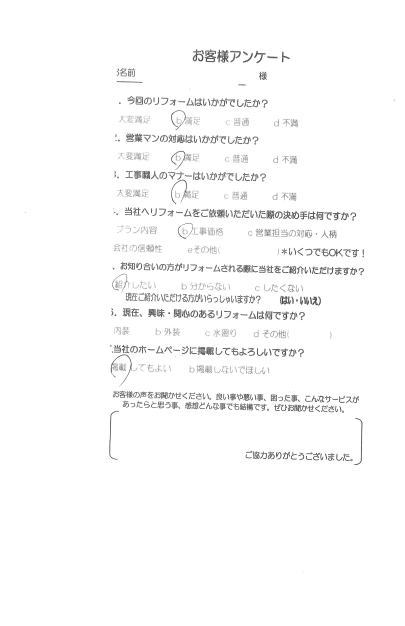 お客様アンケート
名前 様
．今回のリフォームはいかがでしたか？
大変満足 b 満足 c 普通 d 不満
．営業マンの対応はいかがでしたか？
大変満足 b 満足 c 普通 d 不満
．工事職人のマナーはいかがでしたか？
大変満足 b 満足 c 普通 d 不満
．当社へリフォームをご依頼いただいた際の決め手は何ですか？
プラン内容 b 工事価格 c 営業担当の対応・人柄
会社の信頼性 eその他( )＊いくつでもOKです！
．お知り合いの方がリフォームされる際に当社をご紹介いただけますか？
紹介したい b 分からない c したくない
現在ご紹介いただける方がいらっしゃいますか？ (はい・いいえ)
．現在、興味・関心のあるリフォームは何ですか？
内装 b 外装 c 水廻り d その他( )
当社のホームページに掲載してもよろしいですか？
掲載してもよい b 掲載しないでほしい
お客様の声をお聞かせください。良い事や悪い事、困った事、こんなサービスが
あったらと思う事、感想どんな事でも結構です。ぜひお聞かせください。
ご協力ありがとうございました。